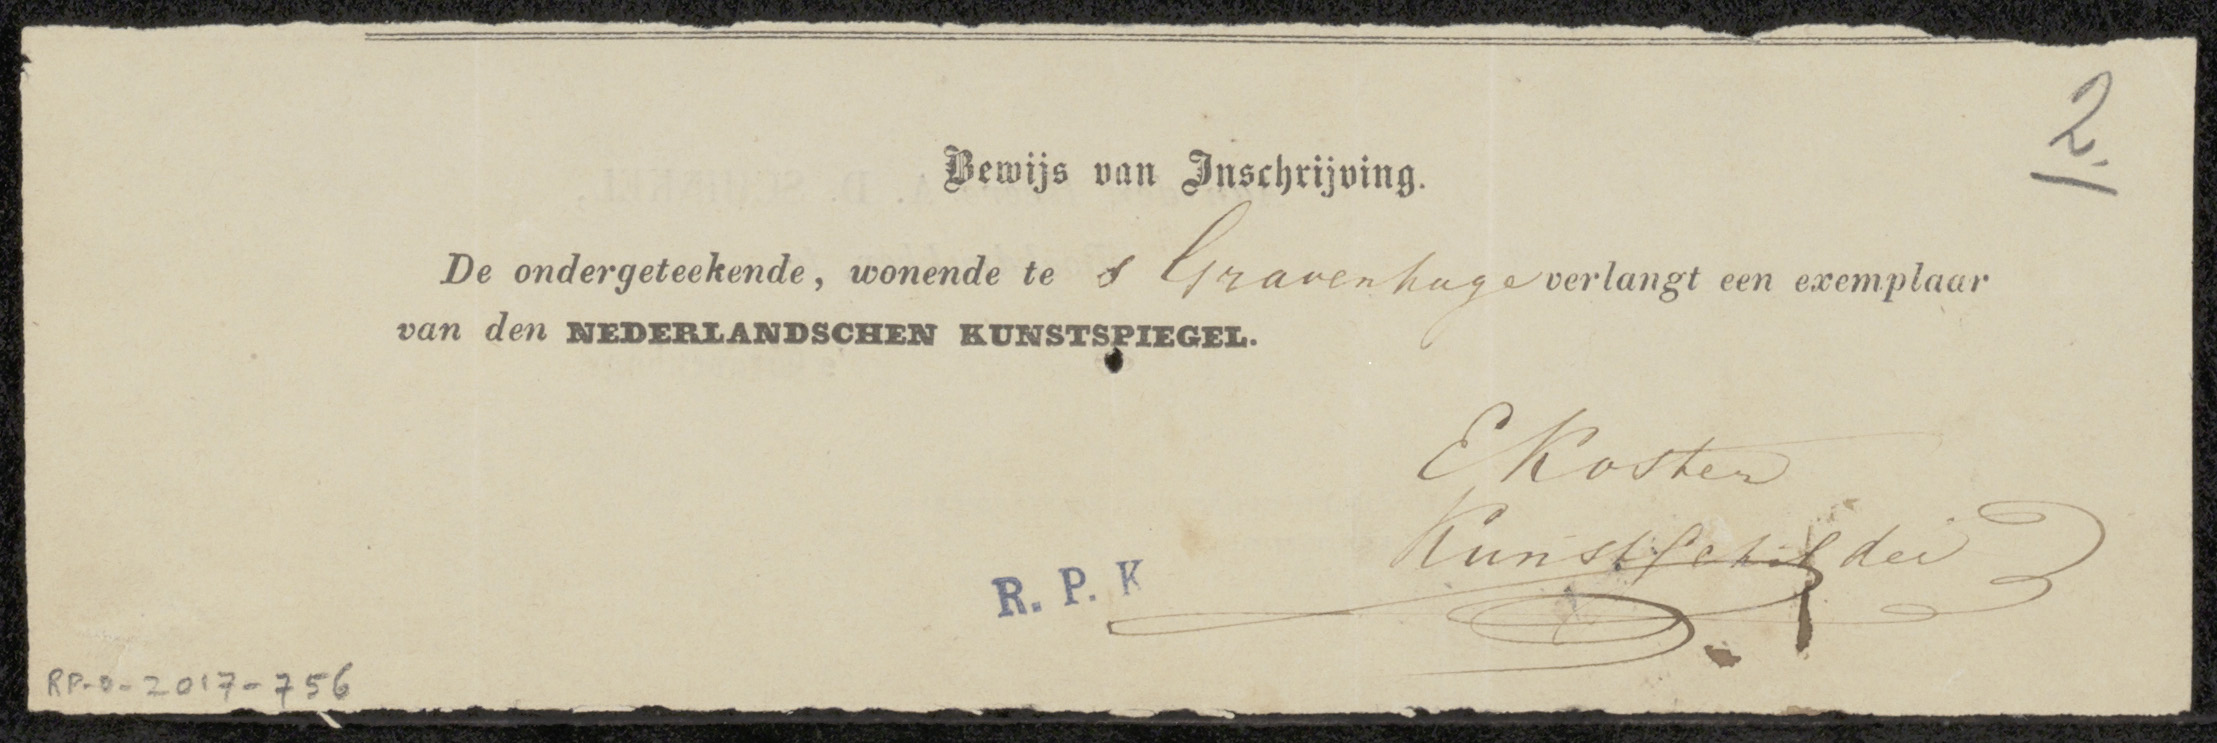 2.
Bewijs van Inschrijving.
De ondergeteekende, wonende te s Gravenhage verlangt een exemplaar
van den NEDERLANDSCHEN KUNSTSPIEGEL.
E Koster
Kunstschilder
R. P. K
RP-D-2017-756